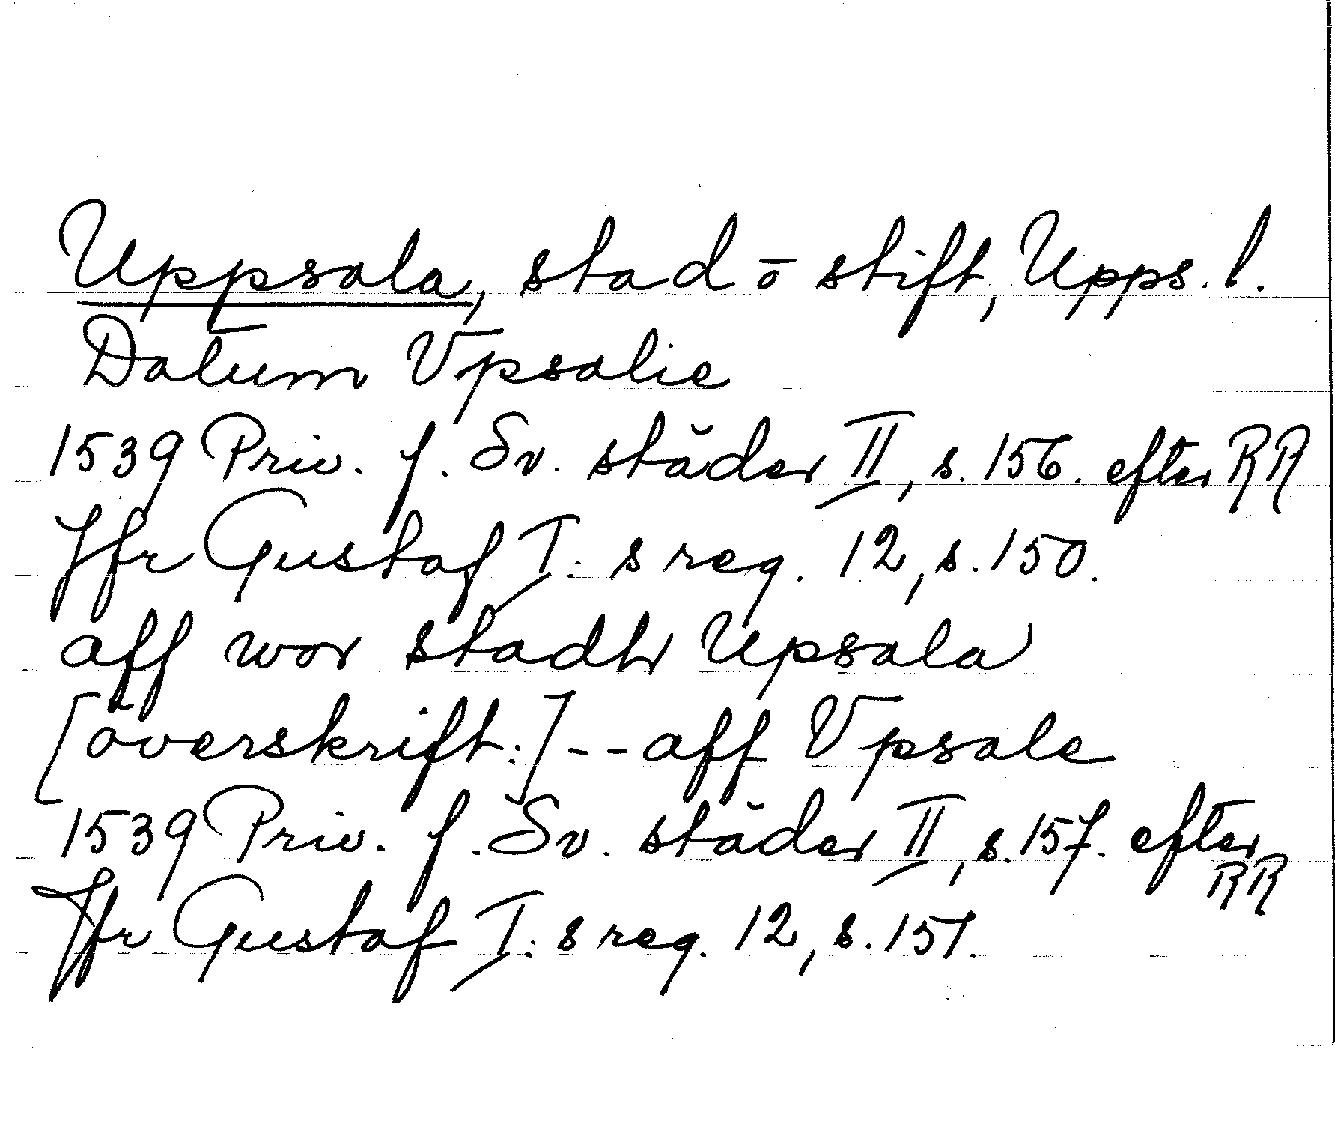 Uppsala, stad o stift, Upps. l.
Datum Vpsalie
1539 Priv. f. Sv. städer II, s. 156. efter RR
Jfr Gustaf I:s reg. 12, s. 150.
aff wor stadh Upsala
[överskrift:] -- aff Vpsale
1539 Priv. f. Sv. städer II, s. 157. efter RR
Jfr Gustaf I:s reg. 12, s. 151.